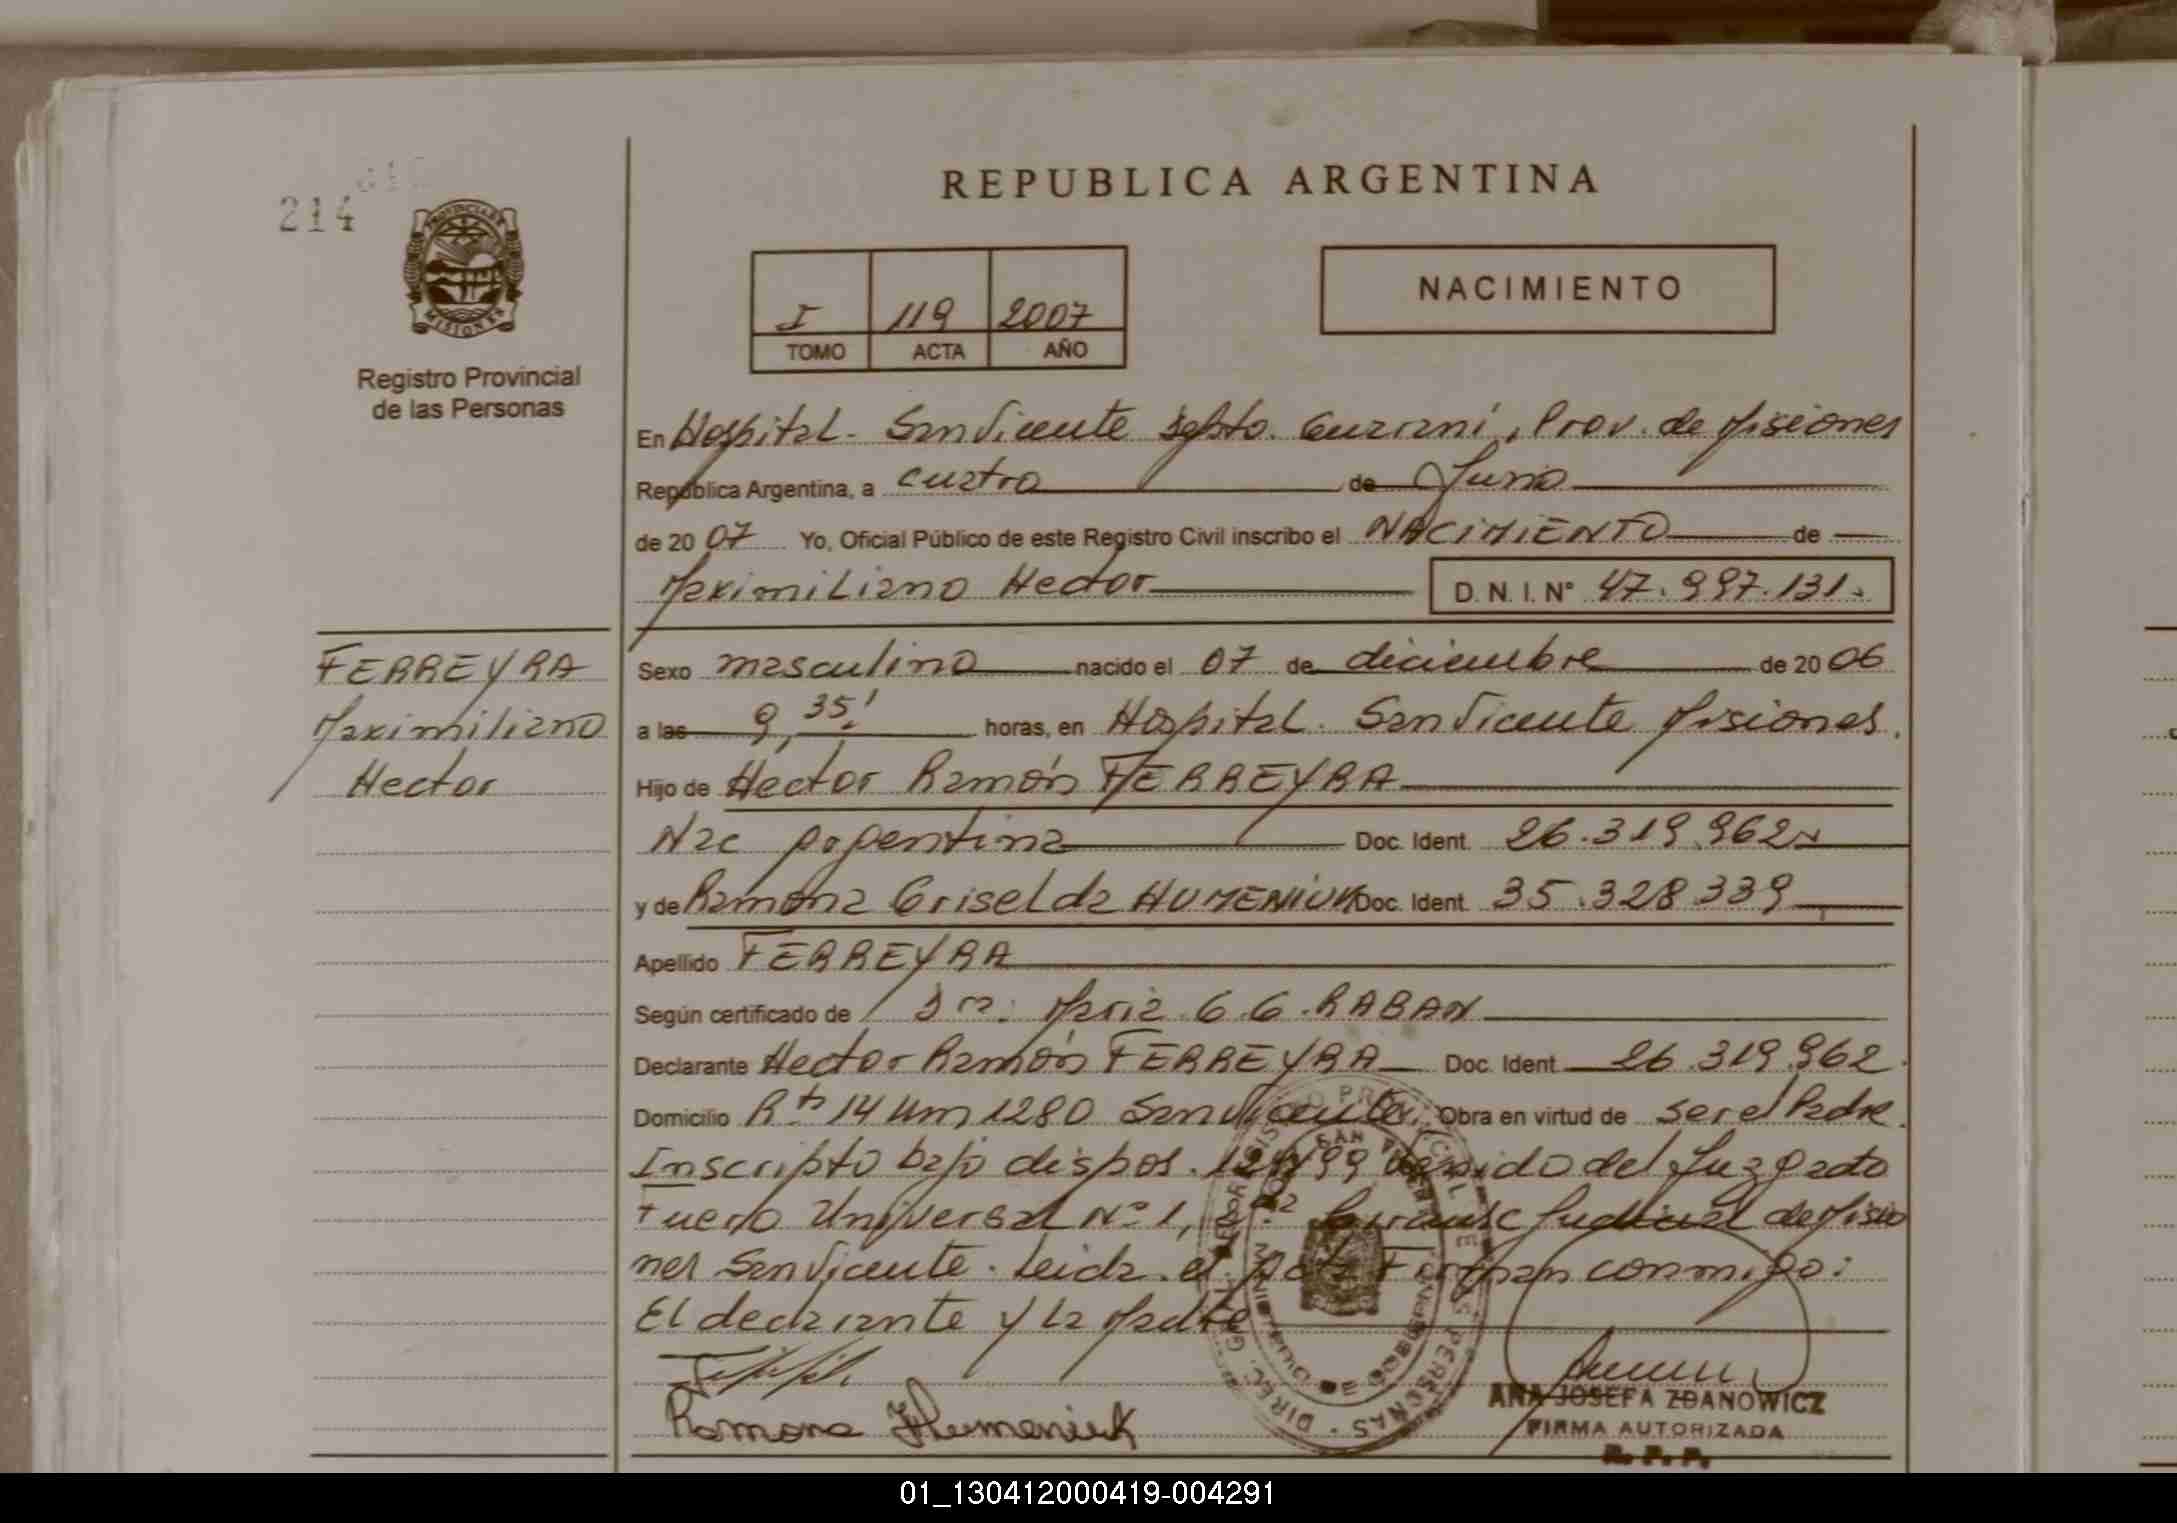 REPUBLICA ARGENTINA
214
PROVINCIA DE
MISIONES
Registro Provincial
de las Personas
I 119 2007
TOMO ACTA AÑO
NACIMIENTO
En Hospital - San Vicente Dpto. Guaraní, Prov. de Misiones
República Argentina, a cuatro de Junio
de 2007 Yo, Oficial Público de este Registro Civil inscribo el NACIMIENTO de
Maximiliano Hector D. N. I. N° 47.997.131.
FERREYRA
Maximiliano
Hector
Sexo masculino nacido el 07 de diciembre de 2006
a las 9,35' horas, en Hospital. San Vicente Misiones.
Hijo de Hector Ramón FERREYRA
Nac Argentina Doc. Ident. 26.319.962
y de Ramona Griselda HUMENIUK Doc. Ident. 35.328.339
Apellido FERREYRA
Según certificado de Dra. Maria G. G. RABAN
Declarante Hector Ramón FERREYRA Doc. Ident. 26.319.962.
Domicilio Rta 14 Km 1280 San Vicente. Obra en virtud de ser el Padre.
Inscripto bajo dispos. del Juzgado
Fuero Universal N° 1, Judicial de Misio
nes San Vicente. Leida el Acta Firman conmigo:
El declarante y la Madre
Ramona Humeniuk
ANA JOSEFA ZDANOWICZ
FIRMA AUTORIZADA
R. P. P.
01_130412000419-004291